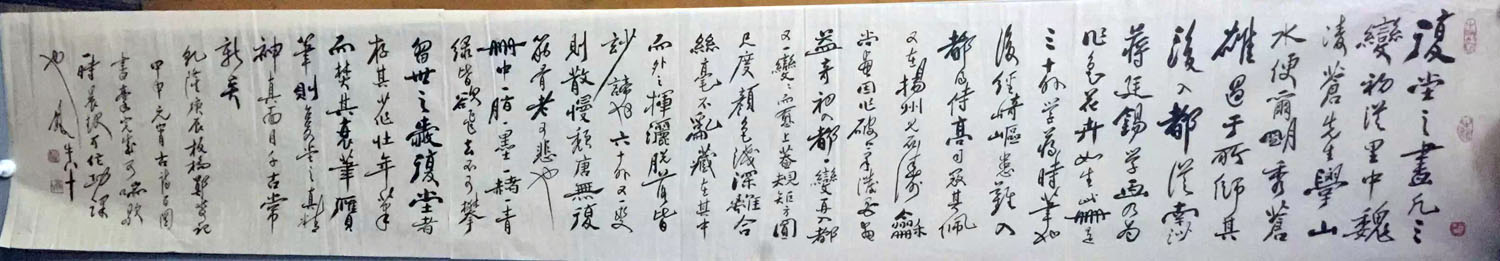 復堂之畫凡三
變初從里中魏
凌蒼先生學山
水便爾明秀蒼
雄過于所師其
後入都從南沙
蔣廷錫學畫乃為
作色花卉如生此冊是
三十外學蔣時筆也
後經崎嶇患難入
都得侍高司寇其佩
又在揚州見石濤龢
尚畫因作破筆潑墨畫
益奇初入都一變再入都
又一變變而愈上蓋規矩方圓
尺度顏色淺深離合
絲毫不亂藏在其中
而外之揮灑脫落皆
妙諦也六十外又一變
則散慢頹唐無復
筋骨老可悲也
冊中一脂一墨一赭一青
綠皆欲飛去不可攀
留世之愛復堂者
存其少作壯年筆
而焚其衰筆贗
筆則復堂之真精
神真面目千古常
新矣
乾隆庚辰板橋鄭燮記
甲申元宵
書畫
時晨
也